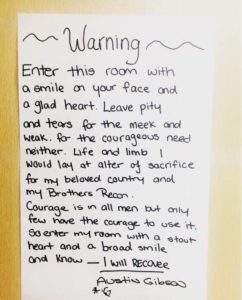 Warning
Enter this room with
a smile on your face and
a glad heart. Leave pity
and tears for the meek and
weak. for the courageous need
neither. Life and limb I
would lay at alter of sacrifice
for my beloved country and
my Brothers Recon.
Courage is in all men but only
few have the courage to use it.
So enter my room with a stout
heart and a broad smile
and know — I will Recover
Austin Gibson